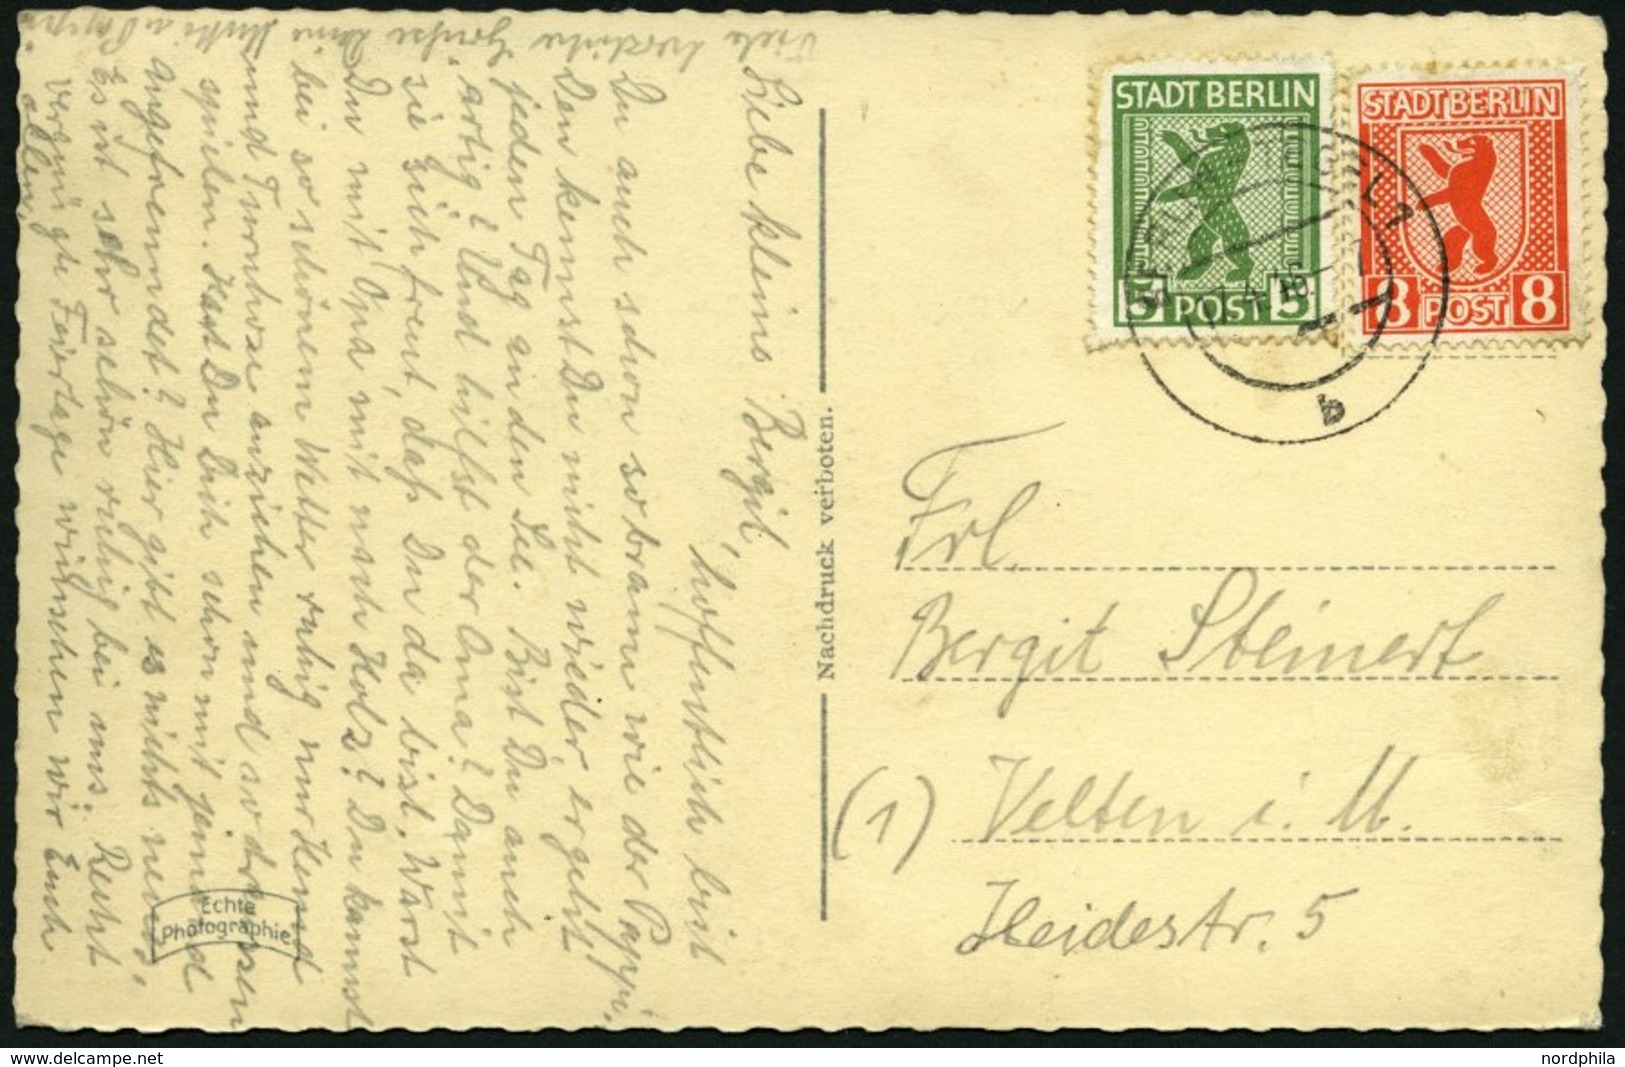 Liebe kleine Bergit,
hoffentlich bist
Du auch schon so braun wie der Pappi.
Den kennst Du nicht wieder, er geht
jeden Tag an den See. Bist Du auch
artig? Und hilfst der Oma? Damit
sie sich freut, daß Du da bist. Warst
Du mit Opa mit nach Holz? Du kannst
bei so schönem Wetter ruhig nur Hemd
und Turnhose anziehen und so draussen
spielen. Hast Du Dich schon mit jemand
angefreundet? Hier gibt es nichts neues,
Es ist sehr schön ruhig bei uns. Recht
vergnügte Feiertage wünschen wir Euch
allen,
Viele herzliche Grüße Deine Mutti u. Pappi.
Nachdruck verboten.
Echte
Photographie
STADT BERLIN
5 POST 5
STADT BERLIN
8 POST 8
b
Frl.
Bergit Steinert
(1) Velten i. M.
Heidestr. 5
nordphila